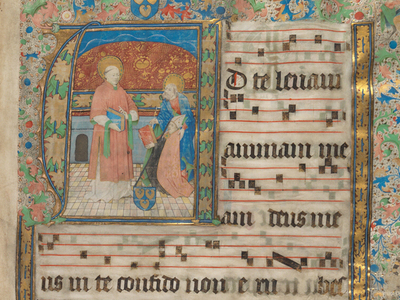 AD te leuaui
animam me
am deus me
us in te confido non e